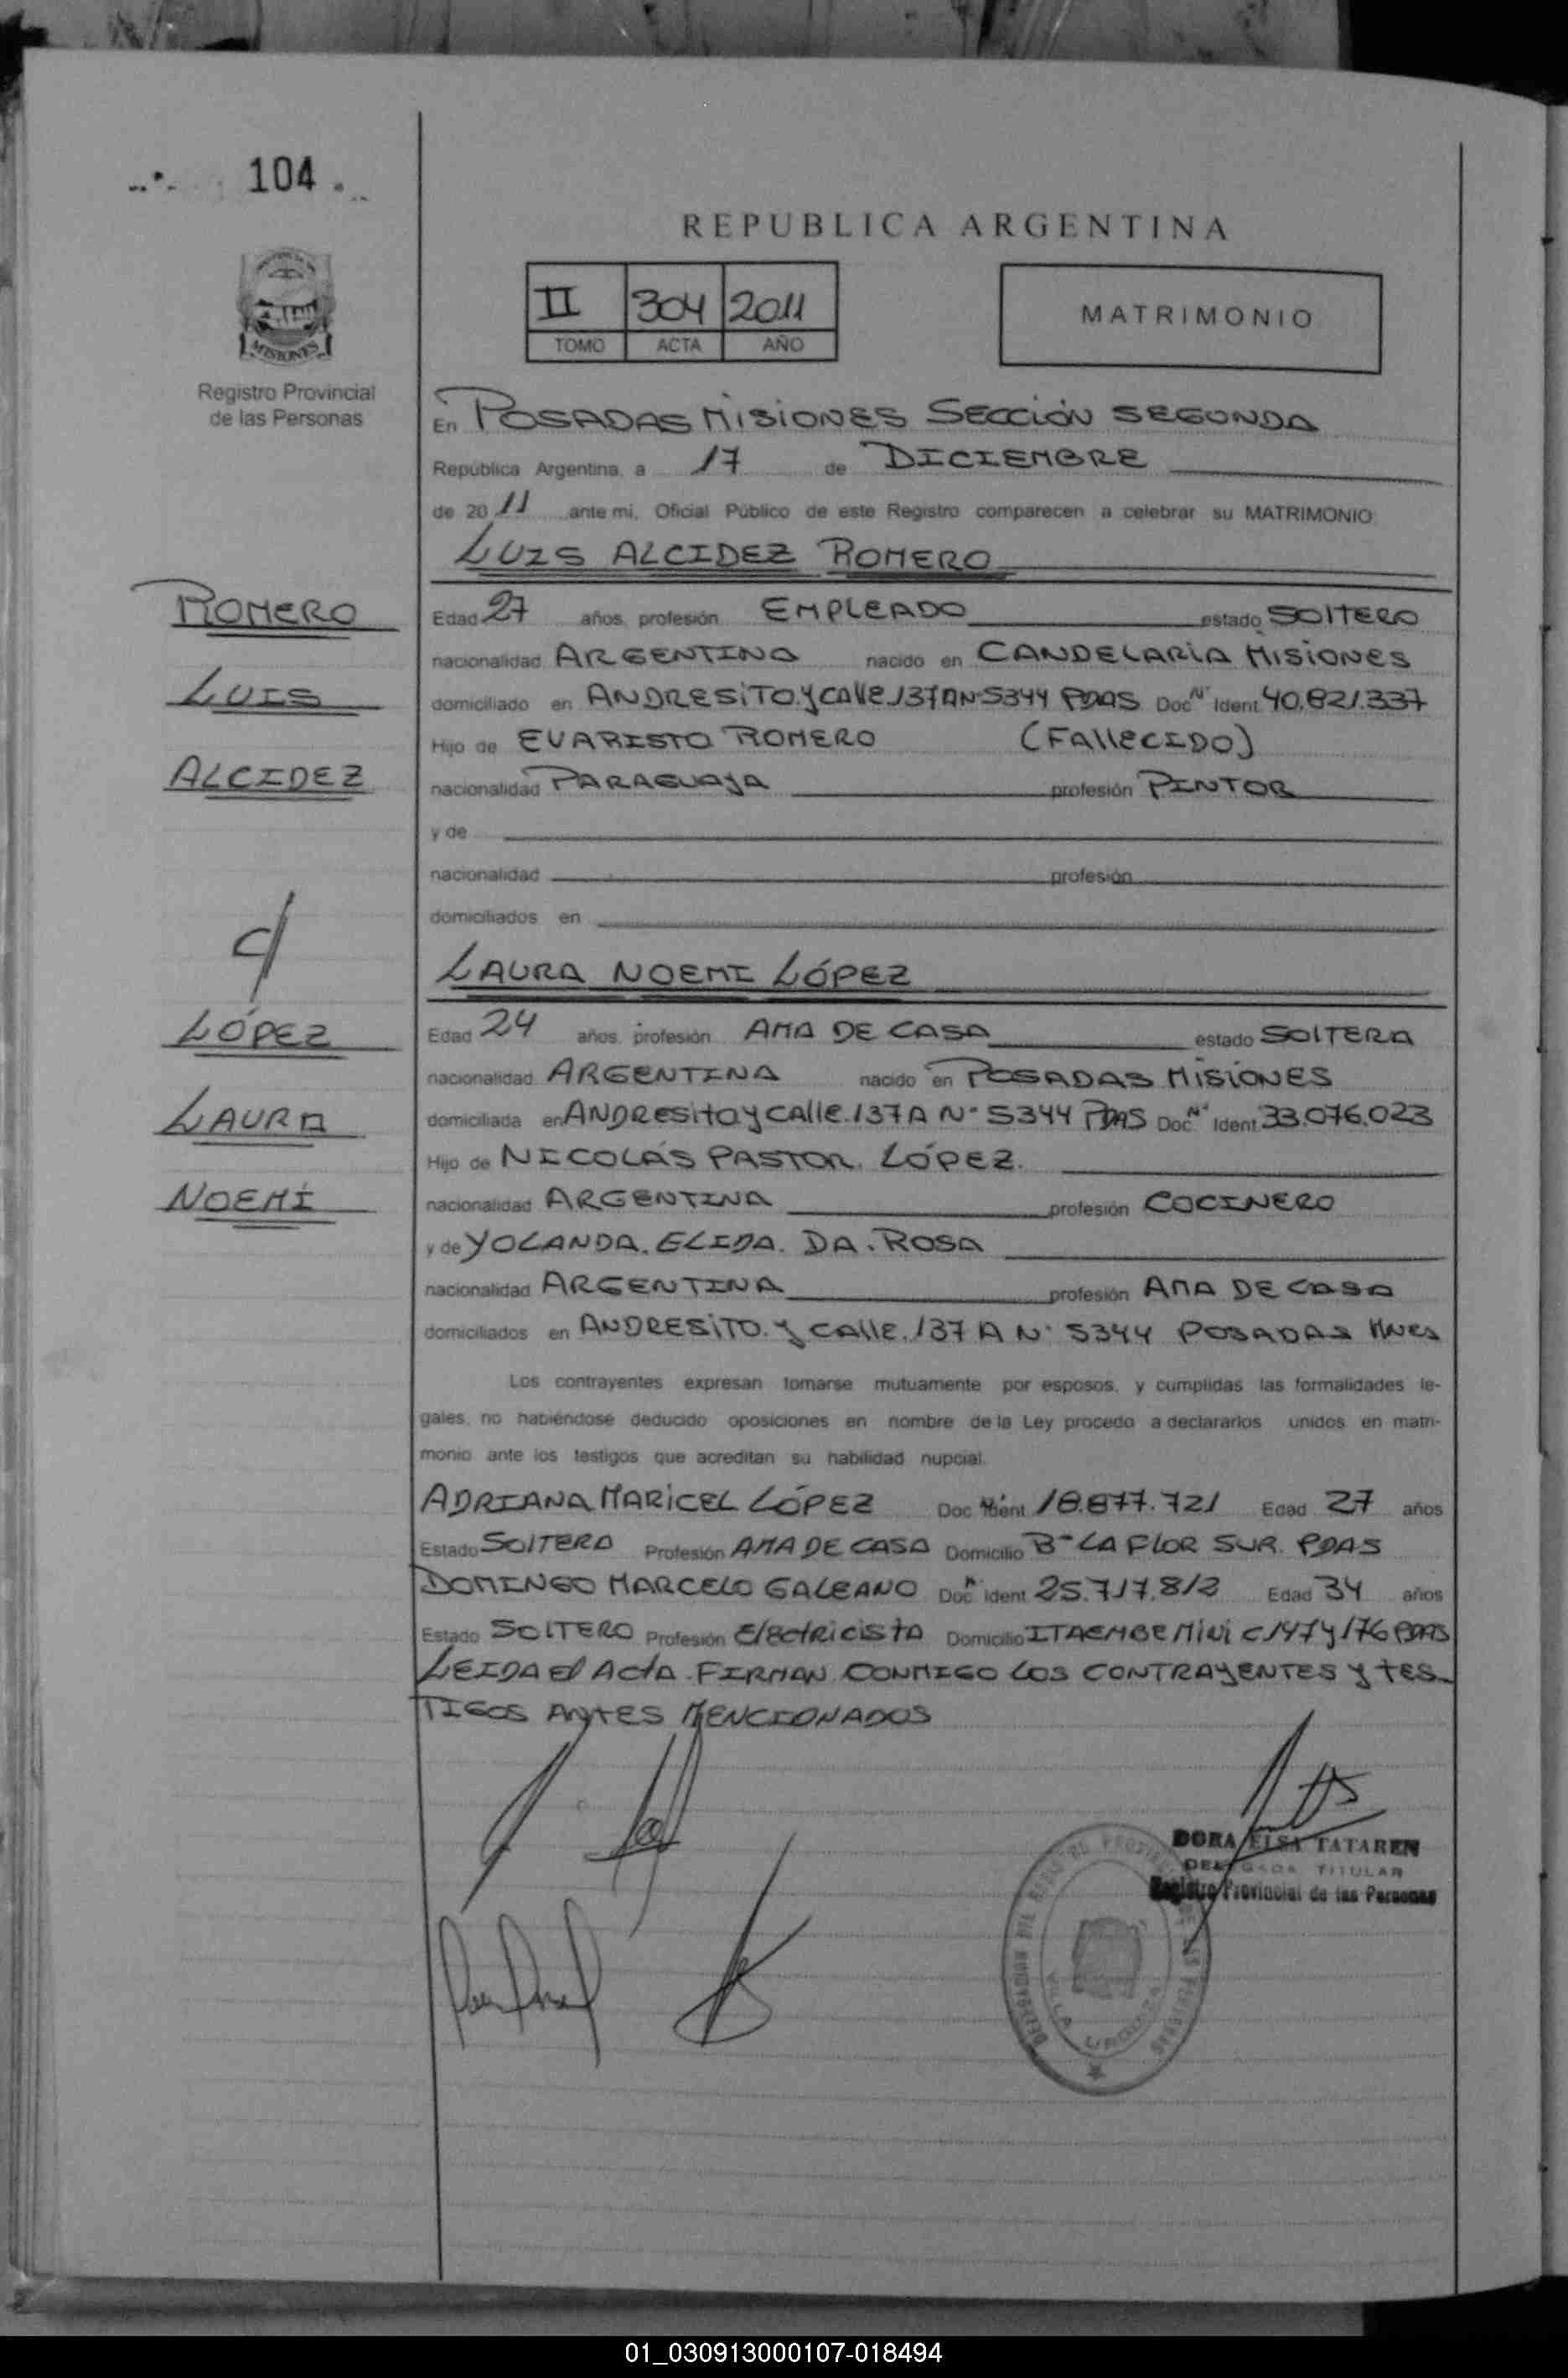 104
REPUBLICA ARGENTINA
II 304 2011
TOMO ACTA AÑO
MATRIMONIO
MISIONES
Registro Provincial
de las Personas
En POSADAS MISIONES SECCIÓN SEGUNDA
República Argentina, a 17 de DICIEMBRE
de 2011 ante mi, Oficial Público de este Registro comparecen a celebrar su MATRIMONIO
LUIS ALCIDEZ ROMERO
ROMERO
LUIS
ALCIDEZ
Edad 27 años, profesión EMPLEADO estado SOLTERO
nacionalidad ARGENTINO nacido en CANDELARIA MISIONES
domiciliado en ANDRESITO.Y CALLE.137A N-5344 PDAS Doc N° Ident 40.821.337
Hijo de EVARISTO ROMERO (FALLECIDO)
nacionalidad PARAGUAYA profesión PINTOR
y de
nacionalidad profesión
domiciliados en
c/
LAURA NOEMI LÓPEZ
LÓPEZ
LAURA
NOEMÍ
Edad 24 años, profesión AMA DE CASA estado SOLTERA
nacionalidad ARGENTINA nacido en POSADAS MISIONES
domiciliada en ANDRESITO Y CALLE.137A N° 5344 PDAS Doc N° Ident 33.076.023
Hijo de NICOLÁS PASTOR. LÓPEZ.
nacionalidad ARGENTINA profesión COCINERO
y de YOLANDA. ELIDA. DA. ROSA
nacionalidad ARGENTINA profesión AMA DE CASA
domiciliados en ANDRESITO. Y CALLE. 137 A N° 5344 POSADAS MNES
Los contrayentes expresan tomarse mutuamente por esposos, y cumplidas las formalidades le-
gales, no habiéndose deducido oposiciones en nombre de la Ley procedo a declararlos unidos en matri-
monio ante los testigos que acreditan su habilidad nupcial.
ADRIANA MARICEL LÓPEZ Doc N° Ident 18.877.721 Edad 27 años
Estado SOLTERA Profesión AMA DE CASA Domicilio B° LA FLOR SUR. PDAS
DOMINGO MARCELO GALEANO Doc N° Ident 25.717.812 Edad 34 años
Estado SOLTERO Profesión Electricista Domicilio ITAEMBE MINI C/147 y 176 PDAS
LEIDA El ACTA. FIRMAN. CONMIGO LOS CONTRAYENTES Y TES-
TIGOS ANTES MENCIONADOS
DORA ELSA TATAREN
DELEGADA TITULAR
Registro Provincial de las Personas
VILLA URQUIZA
01_030913000107-018494